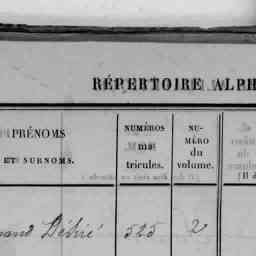 RÉPERTOIRE ALPH
PRÉNOMS
ET SURNOMS.
NUMÉROS
ma
tricules.
NU-
MÉRO
du
volume.
525
2